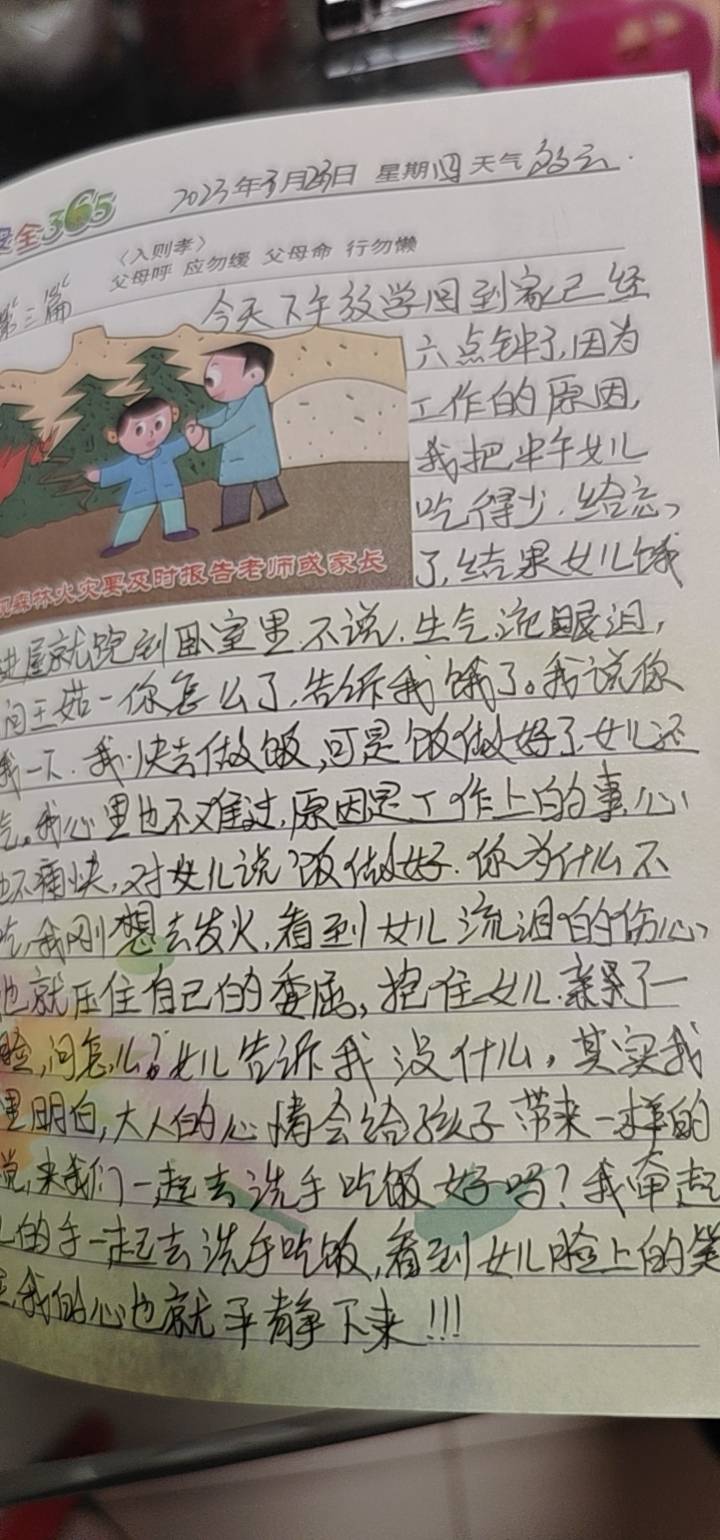 安全365
2023年3月23日 星期四 天气 多云.
〈入则孝〉
父母呼 应勿缓 父母命 行勿懒
第三篇
今天下午放学回到家已经
六点钟了,因为
工作的原因,
我把中午女儿
吃得少.给忘
了,结果女儿饿
现森林火灾要及时报告老师或家长
进屋就跑到卧室里.不说.生气.流眼泪,
问王茹一你怎么了,告诉我饿了。我说你
我一下.我快去做饭,可是饭做好了女儿还
气。我心里也不难过,原因是工作上的事,心
也不痛快,对女儿说饭做好.你为什么不
吃,我刚想去发火,看到女儿流泪的伤心,
也就压住自己的委屈,抱住女儿.亲了一
脸,问怎么?女儿告诉我没什么,其实我
里明白,大人的心情会给孩子带来一样的
说,来我们一起去洗手吃饭好吗?我牵起
儿的手一起去洗手吃饭,看到女儿脸上的笑
我的心也就平静下来!!!